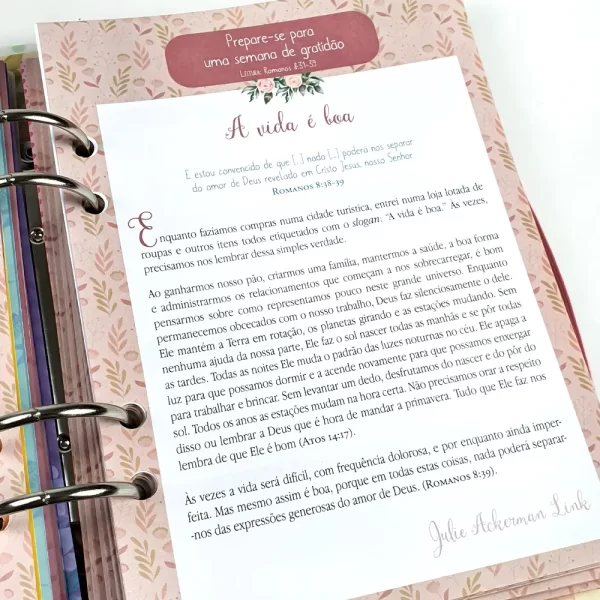 Prepare-se para
uma semana de gratidão
Leitura: Romanos 8:31-39
A vida é boa
E estou convencido de que [...] nada [...] poderá nos separar
do amor de Deus revelado em Cristo Jesus, nosso Senhor.
Romanos 8:38-39
Enquanto fazíamos compras numa cidade turística, entrei numa loja lotada de
roupas e outros itens todos etiquetados com o slogan: “A vida é boa.” Às vezes,
precisamos nos lembrar dessa simples verdade.
Ao ganharmos nosso pão, criarmos uma família, mantermos a saúde, a boa forma
e administrarmos os relacionamentos que começam a nos sobrecarregar, é bom
pensarmos sobre como representamos pouco neste grande universo. Enquanto
permanecemos obcecados com o nosso trabalho, Deus faz silenciosamente o dele.
Ele mantém a Terra em rotação, os planetas girando e as estações mudando. Sem
nenhuma ajuda da nossa parte, Ele faz o sol nascer todas as manhãs e se pôr todas
as tardes. Todas as noites Ele muda o padrão das luzes noturnas no céu. Ele apaga a
luz para que possamos dormir e a acende novamente para que possamos enxergar
para trabalhar e brincar. Sem levantar um dedo, desfrutamos do nascer e do pôr do
sol. Todos os anos as estações mudam na hora certa. Não precisamos orar a respeito
disso ou lembrar a Deus que é hora de mandar a primavera. Tudo que Ele faz nos
lembra de que Ele é bom (Atos 14:17).
Às vezes a vida será difícil, com frequência dolorosa, e por enquanto ainda imper-
feita. Mas mesmo assim é boa, porque em todas estas coisas, nada poderá separar-
-nos das expressões generosas do amor de Deus. (Romanos 8:39).
Julie Ackerman Link